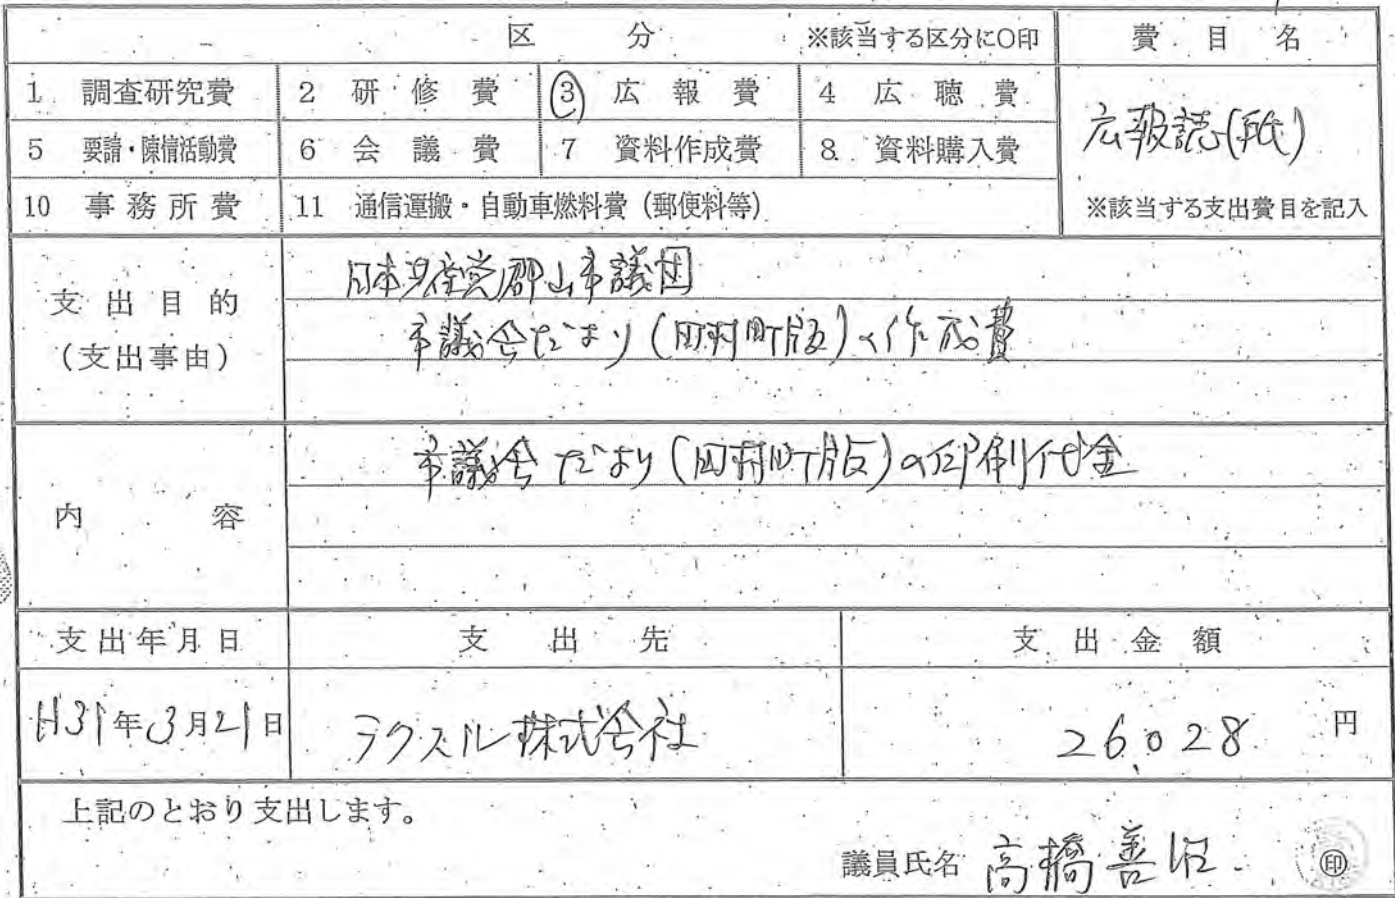 区 分 ※該当する区分に○印 費 目 名
1 調査研究費 2 研 修 費 ③ 広 報 費 4 広 聴 費
広報誌(紙)
5 要請・陳情活動費 6 会 議 費 7 資料作成費 8 資料購入費
10 事 務 所 費 11 通信運搬・自動車燃料費(郵便料等)
※該当する支出費目を記入
支 出 目 的
(支出事由)
日本共産党郡山市議団
市議会だより(田村町版)の作成費
内 容
市議会だより(田村町版)の印刷代金
支出年月日 支 出 先 支 出 金 額
H31年3月21日 ラクスル株式会社 26,028 円
上記のとおり支出します。
議員氏名 高橋善治 ㊞